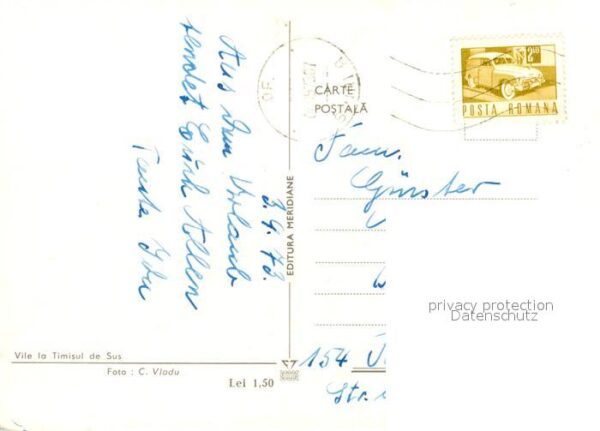 3.9.73.
Aus dem Urlaub
sendet Euch Allen
Tante Idu
EDITURA MERIDIANE
CARTE
POȘTALĂ
2L
POSTA ROMANA
Fam.
Günster
154
Str.
privacy protection
Datenschutz
Vile la Timișul de Sus
Foto : C. Vladu
Lei 1,50